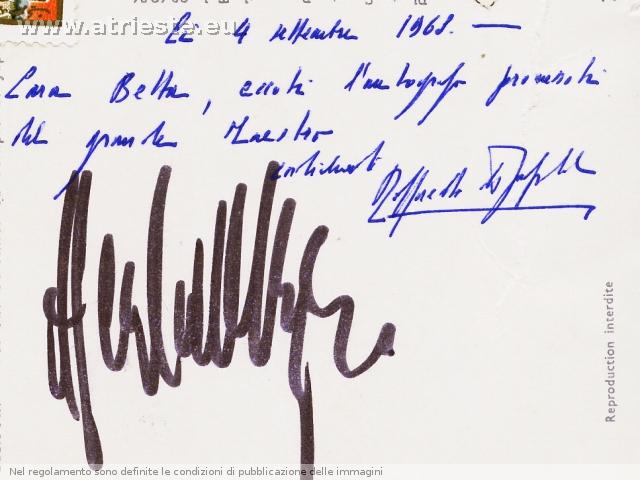 www.atrieste.eu
Li 4 settembre 1968. —
Cara Betta, eccoti l'autografo promessoti
del grande Maestro
cordialmente
Reproduction interdite
Nel regolamento sono definite le condizioni di pubblicazione delle immagini